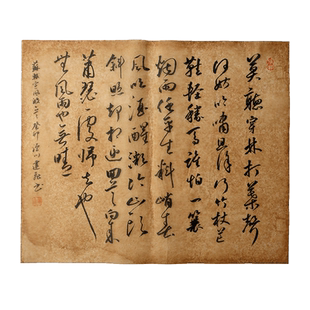 莫聽穿林打葉聲
何妨吟嘯且徐行竹杖芒
鞋輕勝馬誰怕一蓑
烟雨任平生料峭春
風吹酒醒微冷山頭
斜照却相迎回首向來
蕭瑟處歸去也
無風雨也無晴
蘇軾定風波 癸卯 書